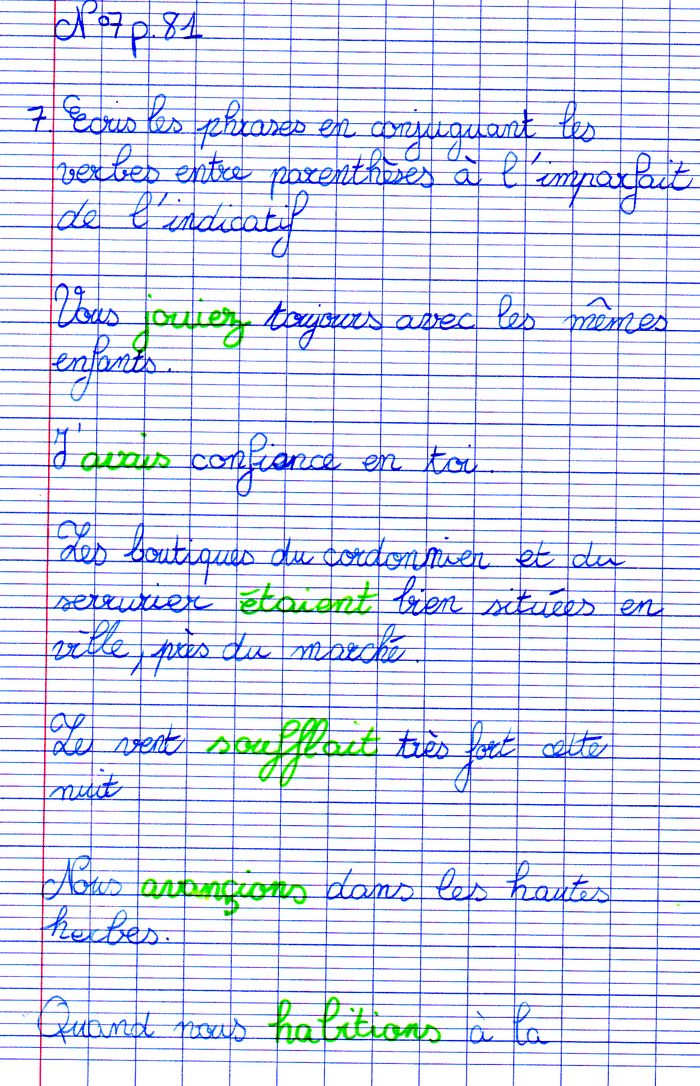 N°7 p.81
7. Ecris les phrases en conjuguant les
verbes entre parenthèses à l'imparfait
de l'indicatif
Vous jouiez toujours avec les mêmes
enfants.
J'avais confiance en toi.
Les boutiques du cordonnier et du
serrurier étaient bien situées en
ville, près du marché.
Le vent soufflait très fort cette
nuit
Nous avançions dans les hautes
herbes.
Quand nous habitions à la